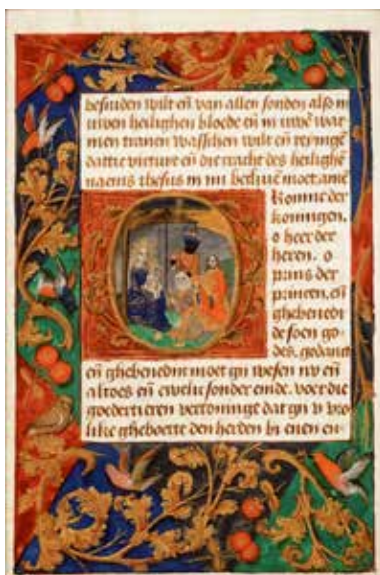 besniden wilt eñ van allen sonden also in
uwen heilighen bloede eñ in uwe war
men tranen wasschen wilt eñ reynigē
dattie virture eñ die cracht des heilighē
naems ihesus in mi becliuē moet amē
O Coninc der
coningen.
o heer der
heren. o
prins der
princen. eñ
ghebenedi
de soen go-
des. gedanct
eñ ghebenedijt moet gij wesen nv eñ
altoes eñ ewelic sonder einde. voer die
goedertieren vertoninge dat gij v vro
like gheboerte den herden bi enen en-